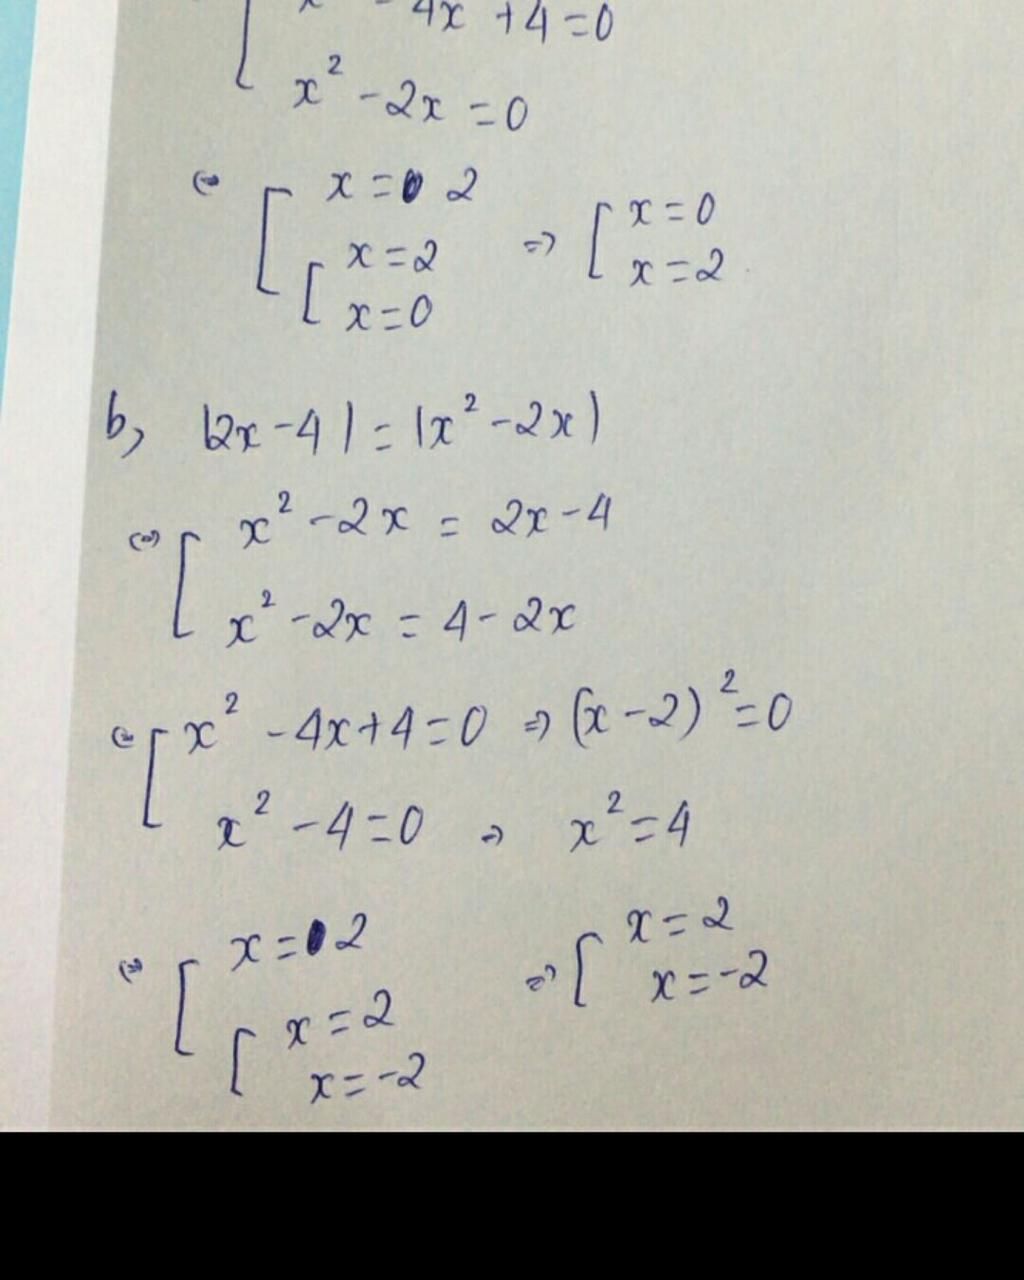 - 4x + 4 = 0
x² - 2x = 0
⇔ [ x = 2
[ x = 2 ⇒ [ x = 0
x = 0 x = 2
b, |2x - 4| = |x² - 2x|
⇔ [ x² - 2x = 2x - 4
x² - 2x = 4 - 2x
⇔ [ x² - 4x + 4 = 0 ⇒ (x - 2)² = 0
x² - 4 = 0 ⇒ x² = 4
⇔ [ x = 2 ⇒ [ x = 2
[ x = 2 x = -2
x = -2